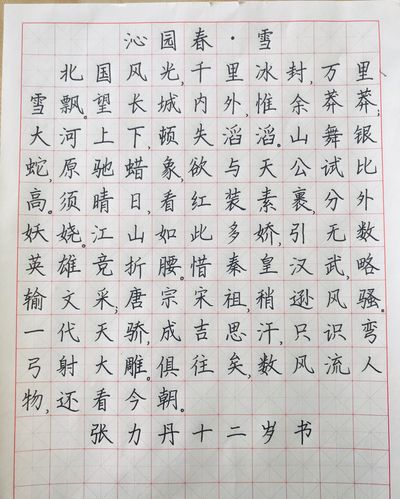 沁园春·雪
北国风光,千里冰封,万里
雪飘。望长城内外,惟余莽莽;
大河上下,顿失滔滔。山舞银
蛇,原驰蜡象,欲与天公试比
高。须晴日,看红装素裹,分外
妖娆。江山如此多娇,引无数
英雄竞折腰。惜秦皇汉武,略
输文采;唐宗宋祖,稍逊风骚。
一代天骄,成吉思汗,只识弯
弓射大雕。俱往矣,数风流人
物,还看今朝。
张力丹十二岁书